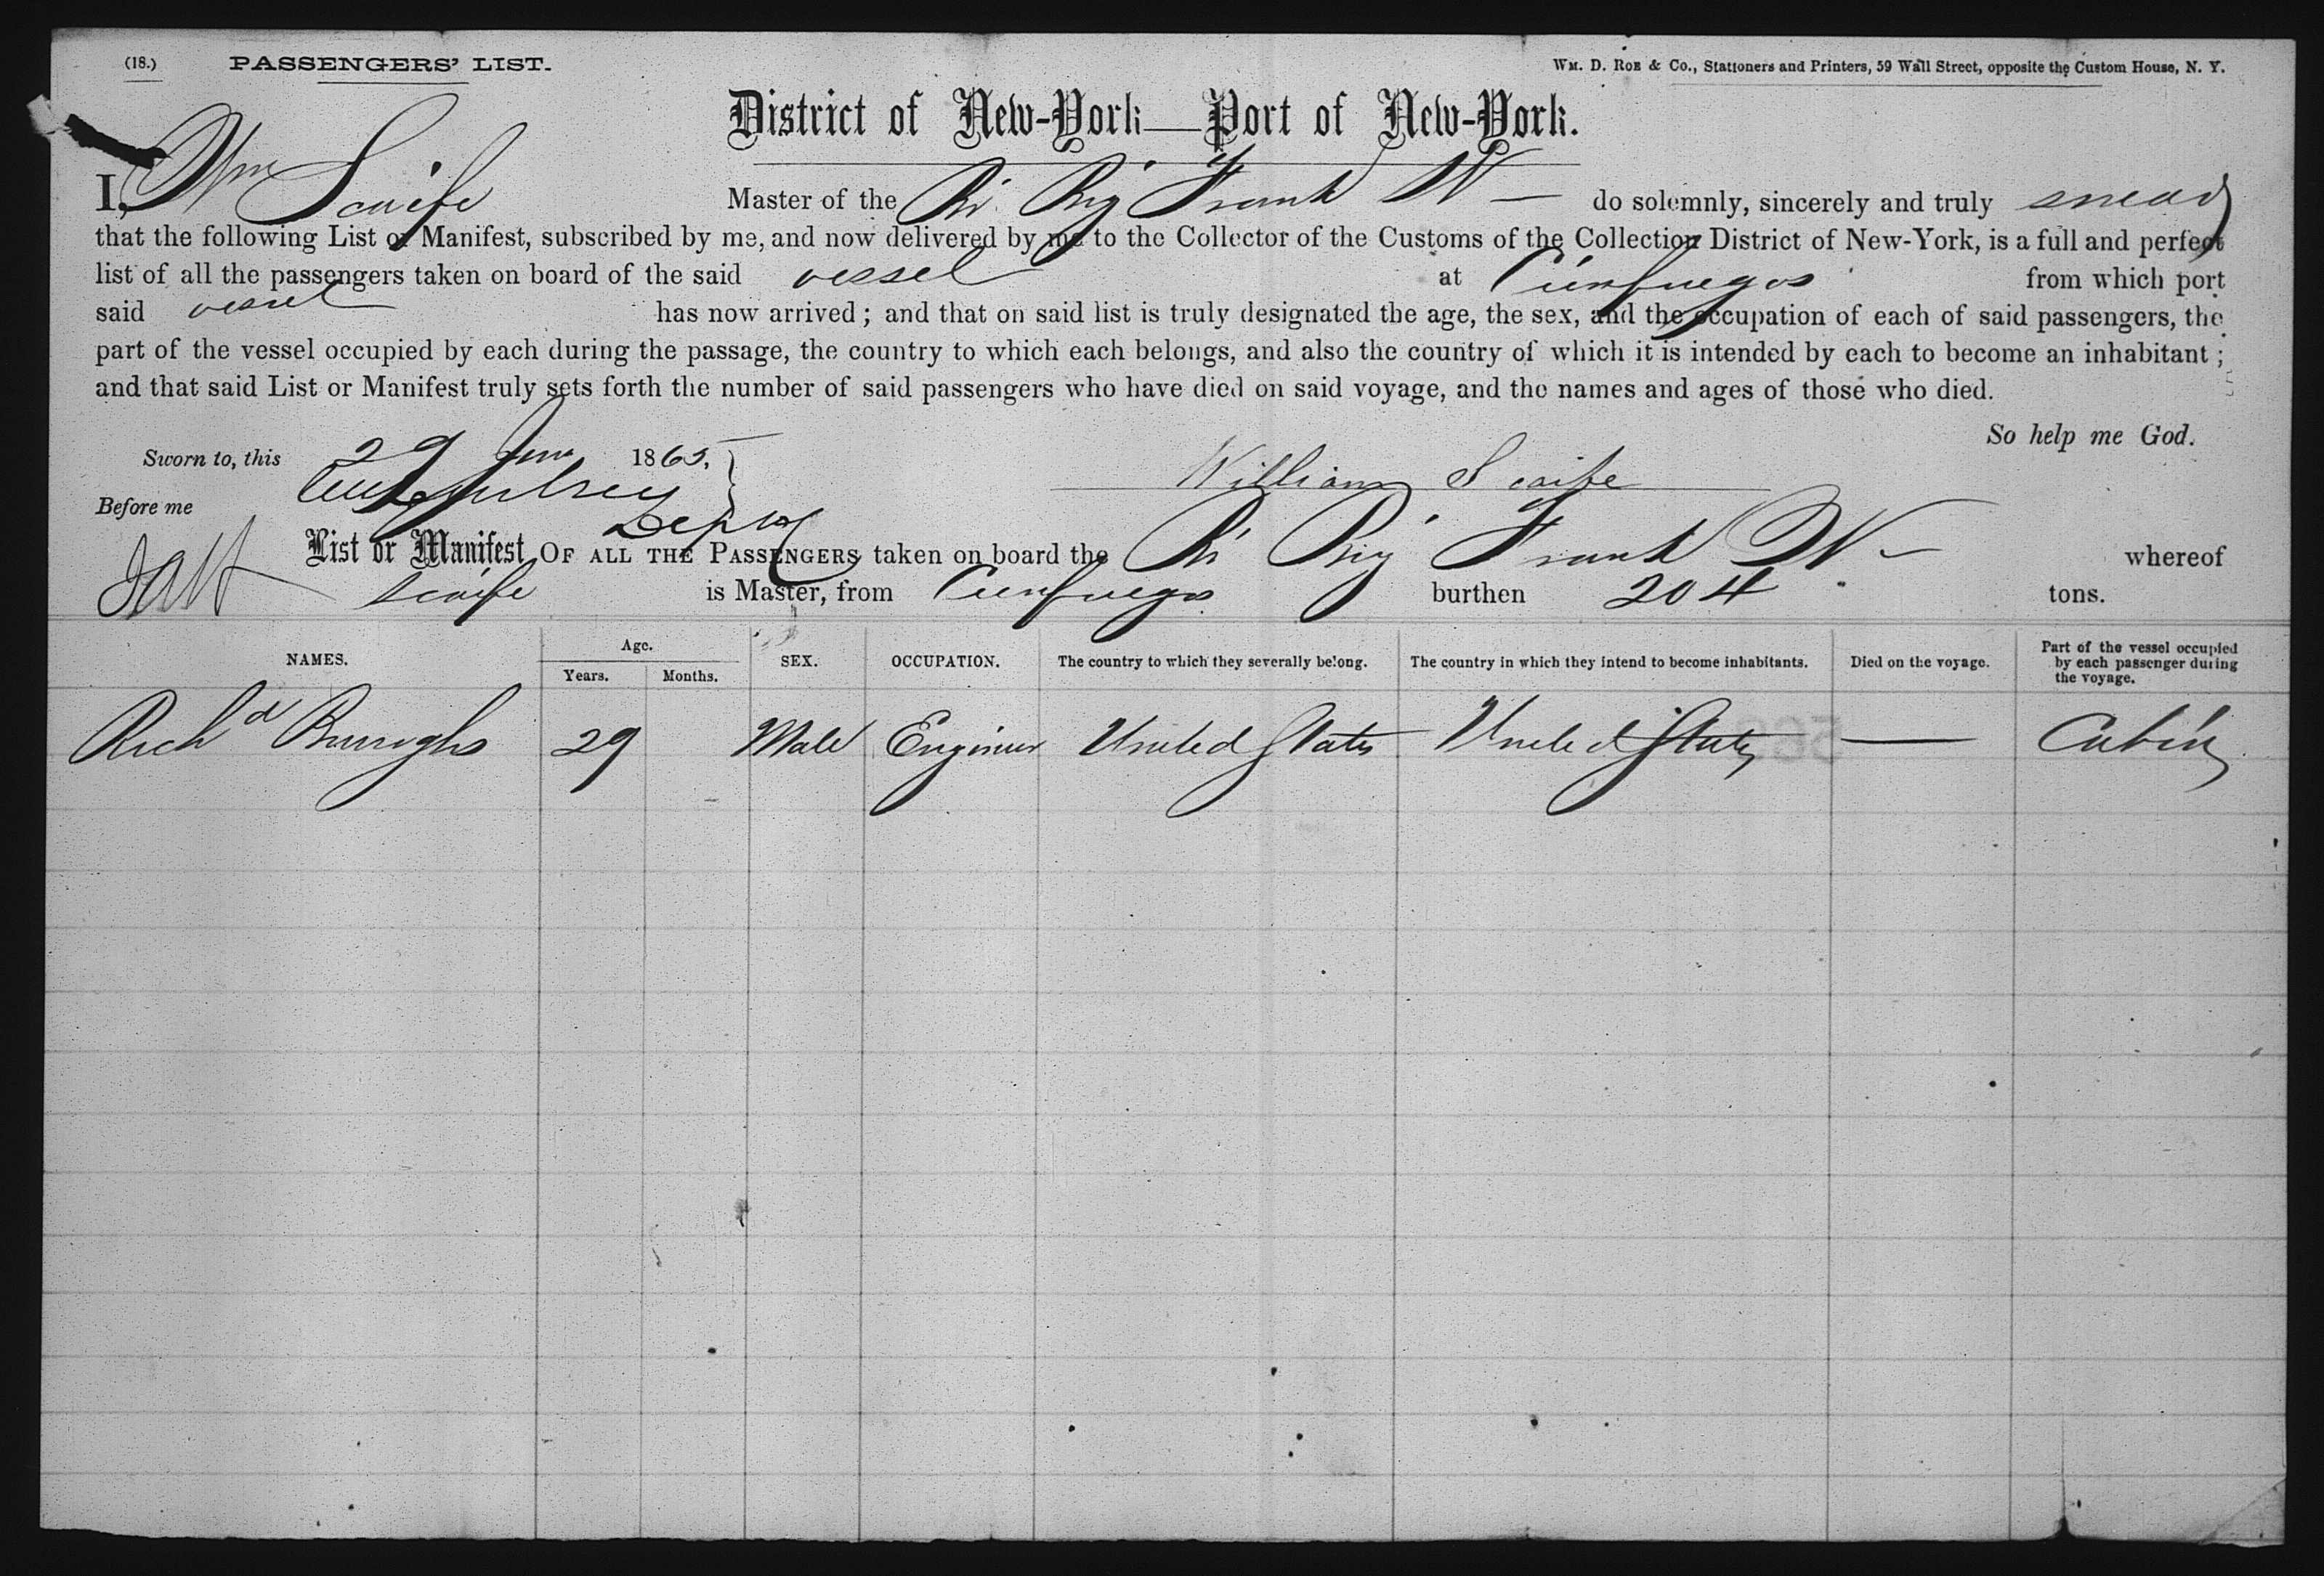 (18.) PASSENGERS' LIST. Wm. D. Roe & Co., Stationers and Printers, 59 Wall Street, opposite the Custom House, N. Y.
District of New-York—Port of New-York.
I, Wm Scaife Master of the Br Brig Frank W — do solemnly, sincerely and truly swear
that the following List or Manifest, subscribed by me, and now delivered by me to the Collector of the Customs of the Collection District of New-York, is a full and perfect
list of all the passengers taken on board of the said vessel at Cienfuegos from which port
said vessel has now arrived; and that on said list is truly designated the age, the sex, and the occupation of each of said passengers, the
part of the vessel occupied by each during the passage, the country to which each belongs, and also the country of which it is intended by each to become an inhabitant;
and that said List or Manifest truly sets forth the number of said passengers who have died on said voyage, and the names and ages of those who died.
So help me God.
Sworn to, this 29 1865,
William Scaife
Before me
Depty
List or Manifest OF ALL THE PASSENGERS taken on board the Br Brig Frank W — whereof
Scaife is Master, from Cienfuegos burthen 204 tons.
NAMES. Age. Years. Months. SEX. OCCUPATION. The country to which they severally belong. The country in which they intend to become inhabitants. Died on the voyage. Part of the vessel occupied by each passenger during the voyage.
Richd Burroughs 29 Male Engineer United States United States — Cabin